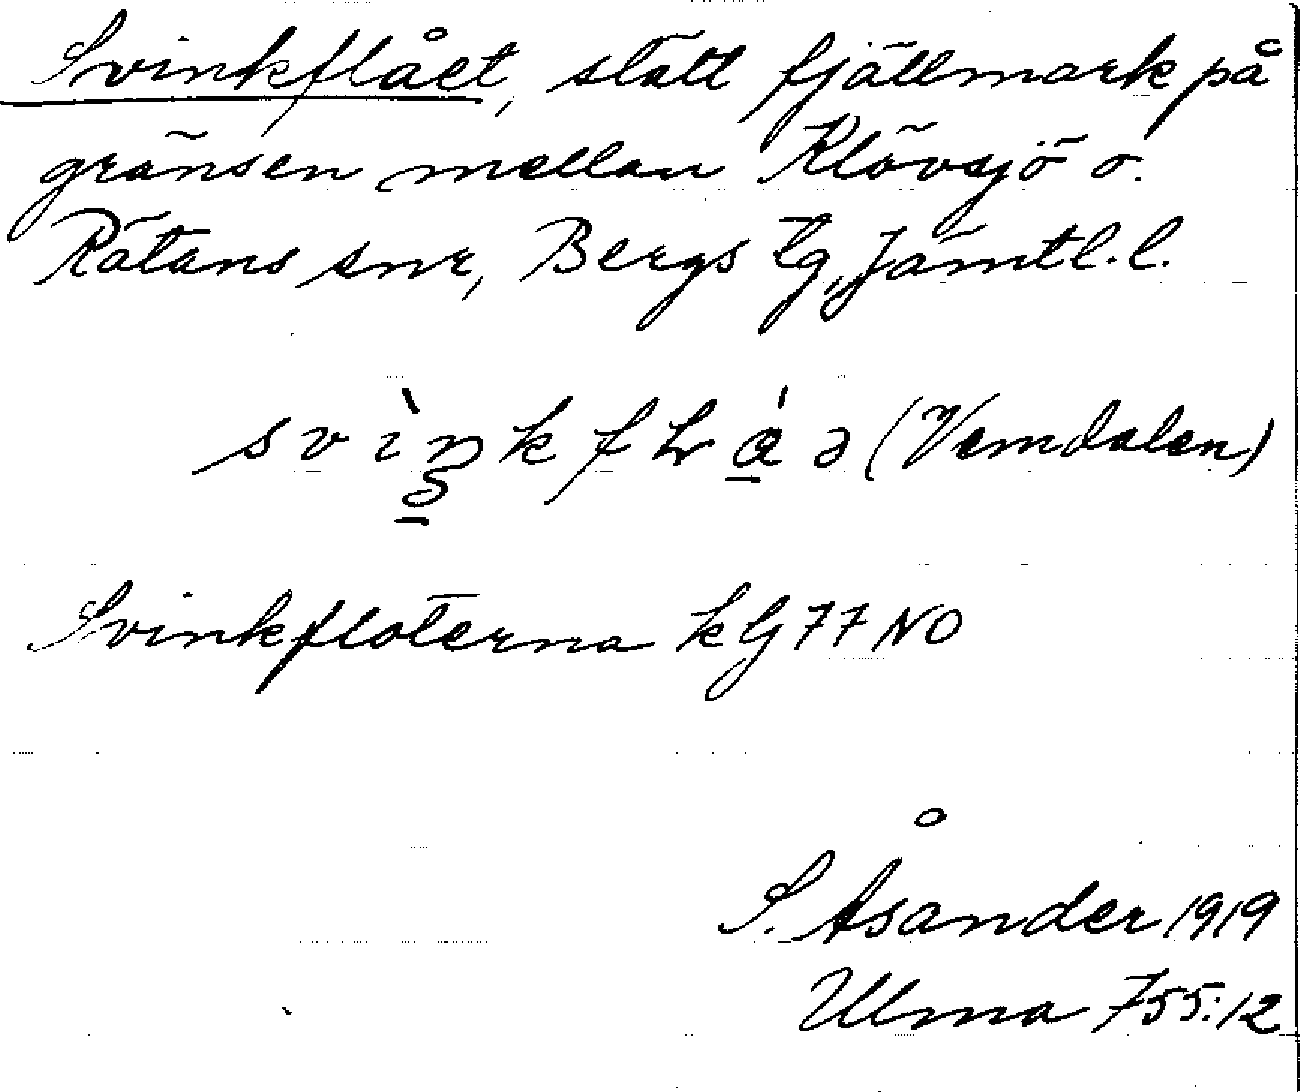 Svinkflået, slätt fjällmark på
gränsen mellan Klövsjö o.
Rätans snr, Bergs tg, Jämtl. l.
(Vemdalen)
Svinkfloterna kG 77 NO
S. Åsander 1919
Ulma 755:12